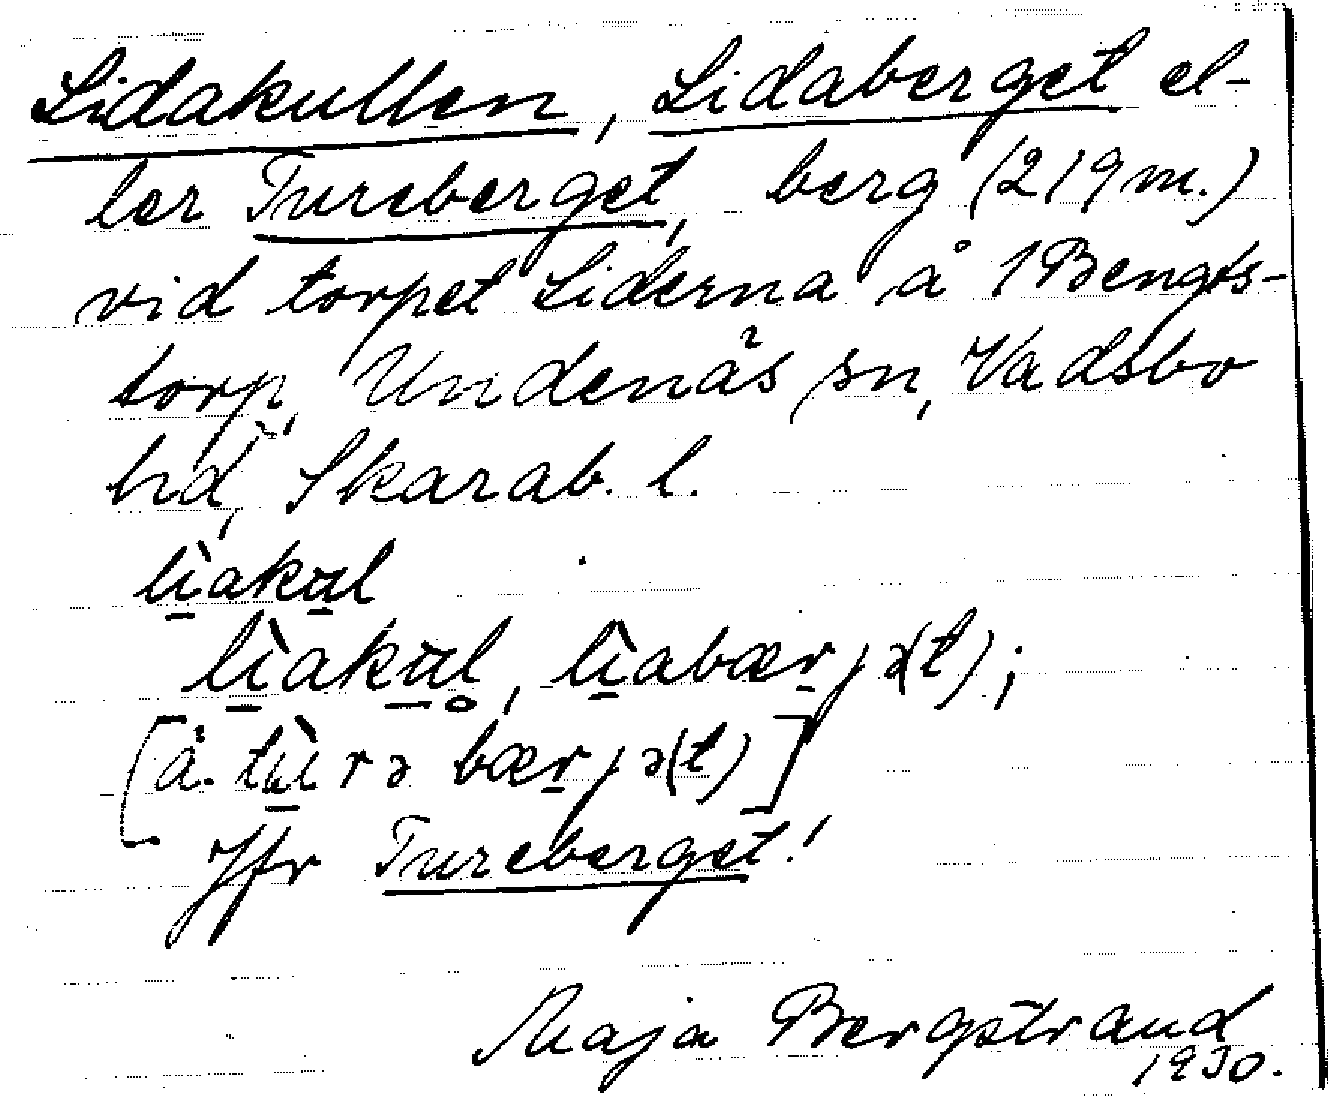 Lidakullen, Lidaberget el-
ler Tureberget, berg (219 m.)
vid torpet Liderna å 1 Bengts-
torp, Undenäs sn, Vadsbo
hd, Skarab. l.
lìakul
lìakul, lìabærjə(t);
[å. tùrə bærjə(t)]
Jfr Tureberget!
Maja Bergstrand
1930.